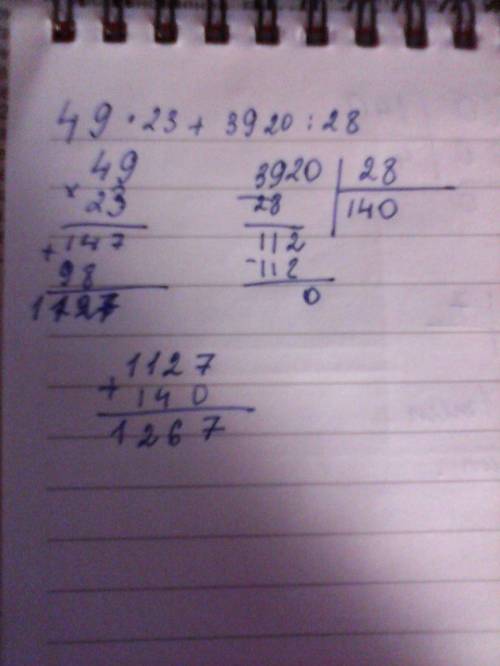 49 · 23 + 3920 : 28
49
× 23
147
+ 98
1127
3920 | 28
- 28 | 140
112
- 112
0
1127
+ 140
1267